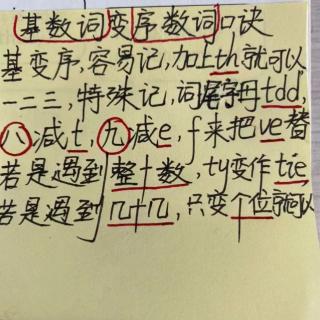 基数词变序数词口诀
基变序,容易记,加上th就可以
一二三,特殊记,词尾字母tdd,
八减t,九减e,f来把ve替
若是遇到整十数,ty变作tie
若是遇到几十几,只变个位就可以